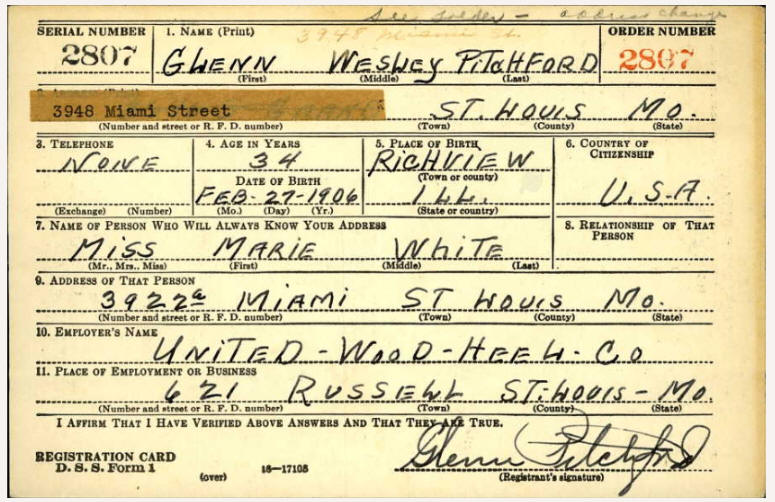 see folder - address change
SERIAL NUMBER 1. NAME (Print) 3948 Miami St. ORDER NUMBER
2807 GLENN WESLEY PITCHFORD 2807
(First) (Middle) (Last)
3948 Miami Street ST. LOUIS MO.
(Number and street or R. F. D. number) (Town) (County) (State)
3. TELEPHONE 4. AGE IN YEARS 5. PLACE OF BIRTH 6. COUNTRY OF CITIZENSHIP
NONE 34 RICHVIEW
(Town or county)
DATE OF BIRTH
FEB-27-1906 ILL. U.S.A.
(Exchange) (Number) (Mo.) (Day) (Yr.) (State or country)
7. NAME OF PERSON WHO WILL ALWAYS KNOW YOUR ADDRESS 8. RELATIONSHIP OF THAT PERSON
MISS MARIE WHITE
(Mr., Mrs., Miss) (First) (Middle) (Last)
9. ADDRESS OF THAT PERSON
3922a MIAMI ST LOUIS MO.
(Number and street or R. F. D. number) (Town) (County) (State)
10. EMPLOYER'S NAME
UNITED-WOOD-HEEL-CO
11. PLACE OF EMPLOYMENT OR BUSINESS
621 RUSSELL ST. LOUIS-MO.
(Number and street or R. F. D. number) (Town) (County) (State)
I AFFIRM THAT I HAVE VERIFIED ABOVE ANSWERS AND THAT THEY ARE TRUE.
REGISTRATION CARD
D. S. S. Form 1 (over) 16-17105 Glenn Pitchford
(Registrant's signature)